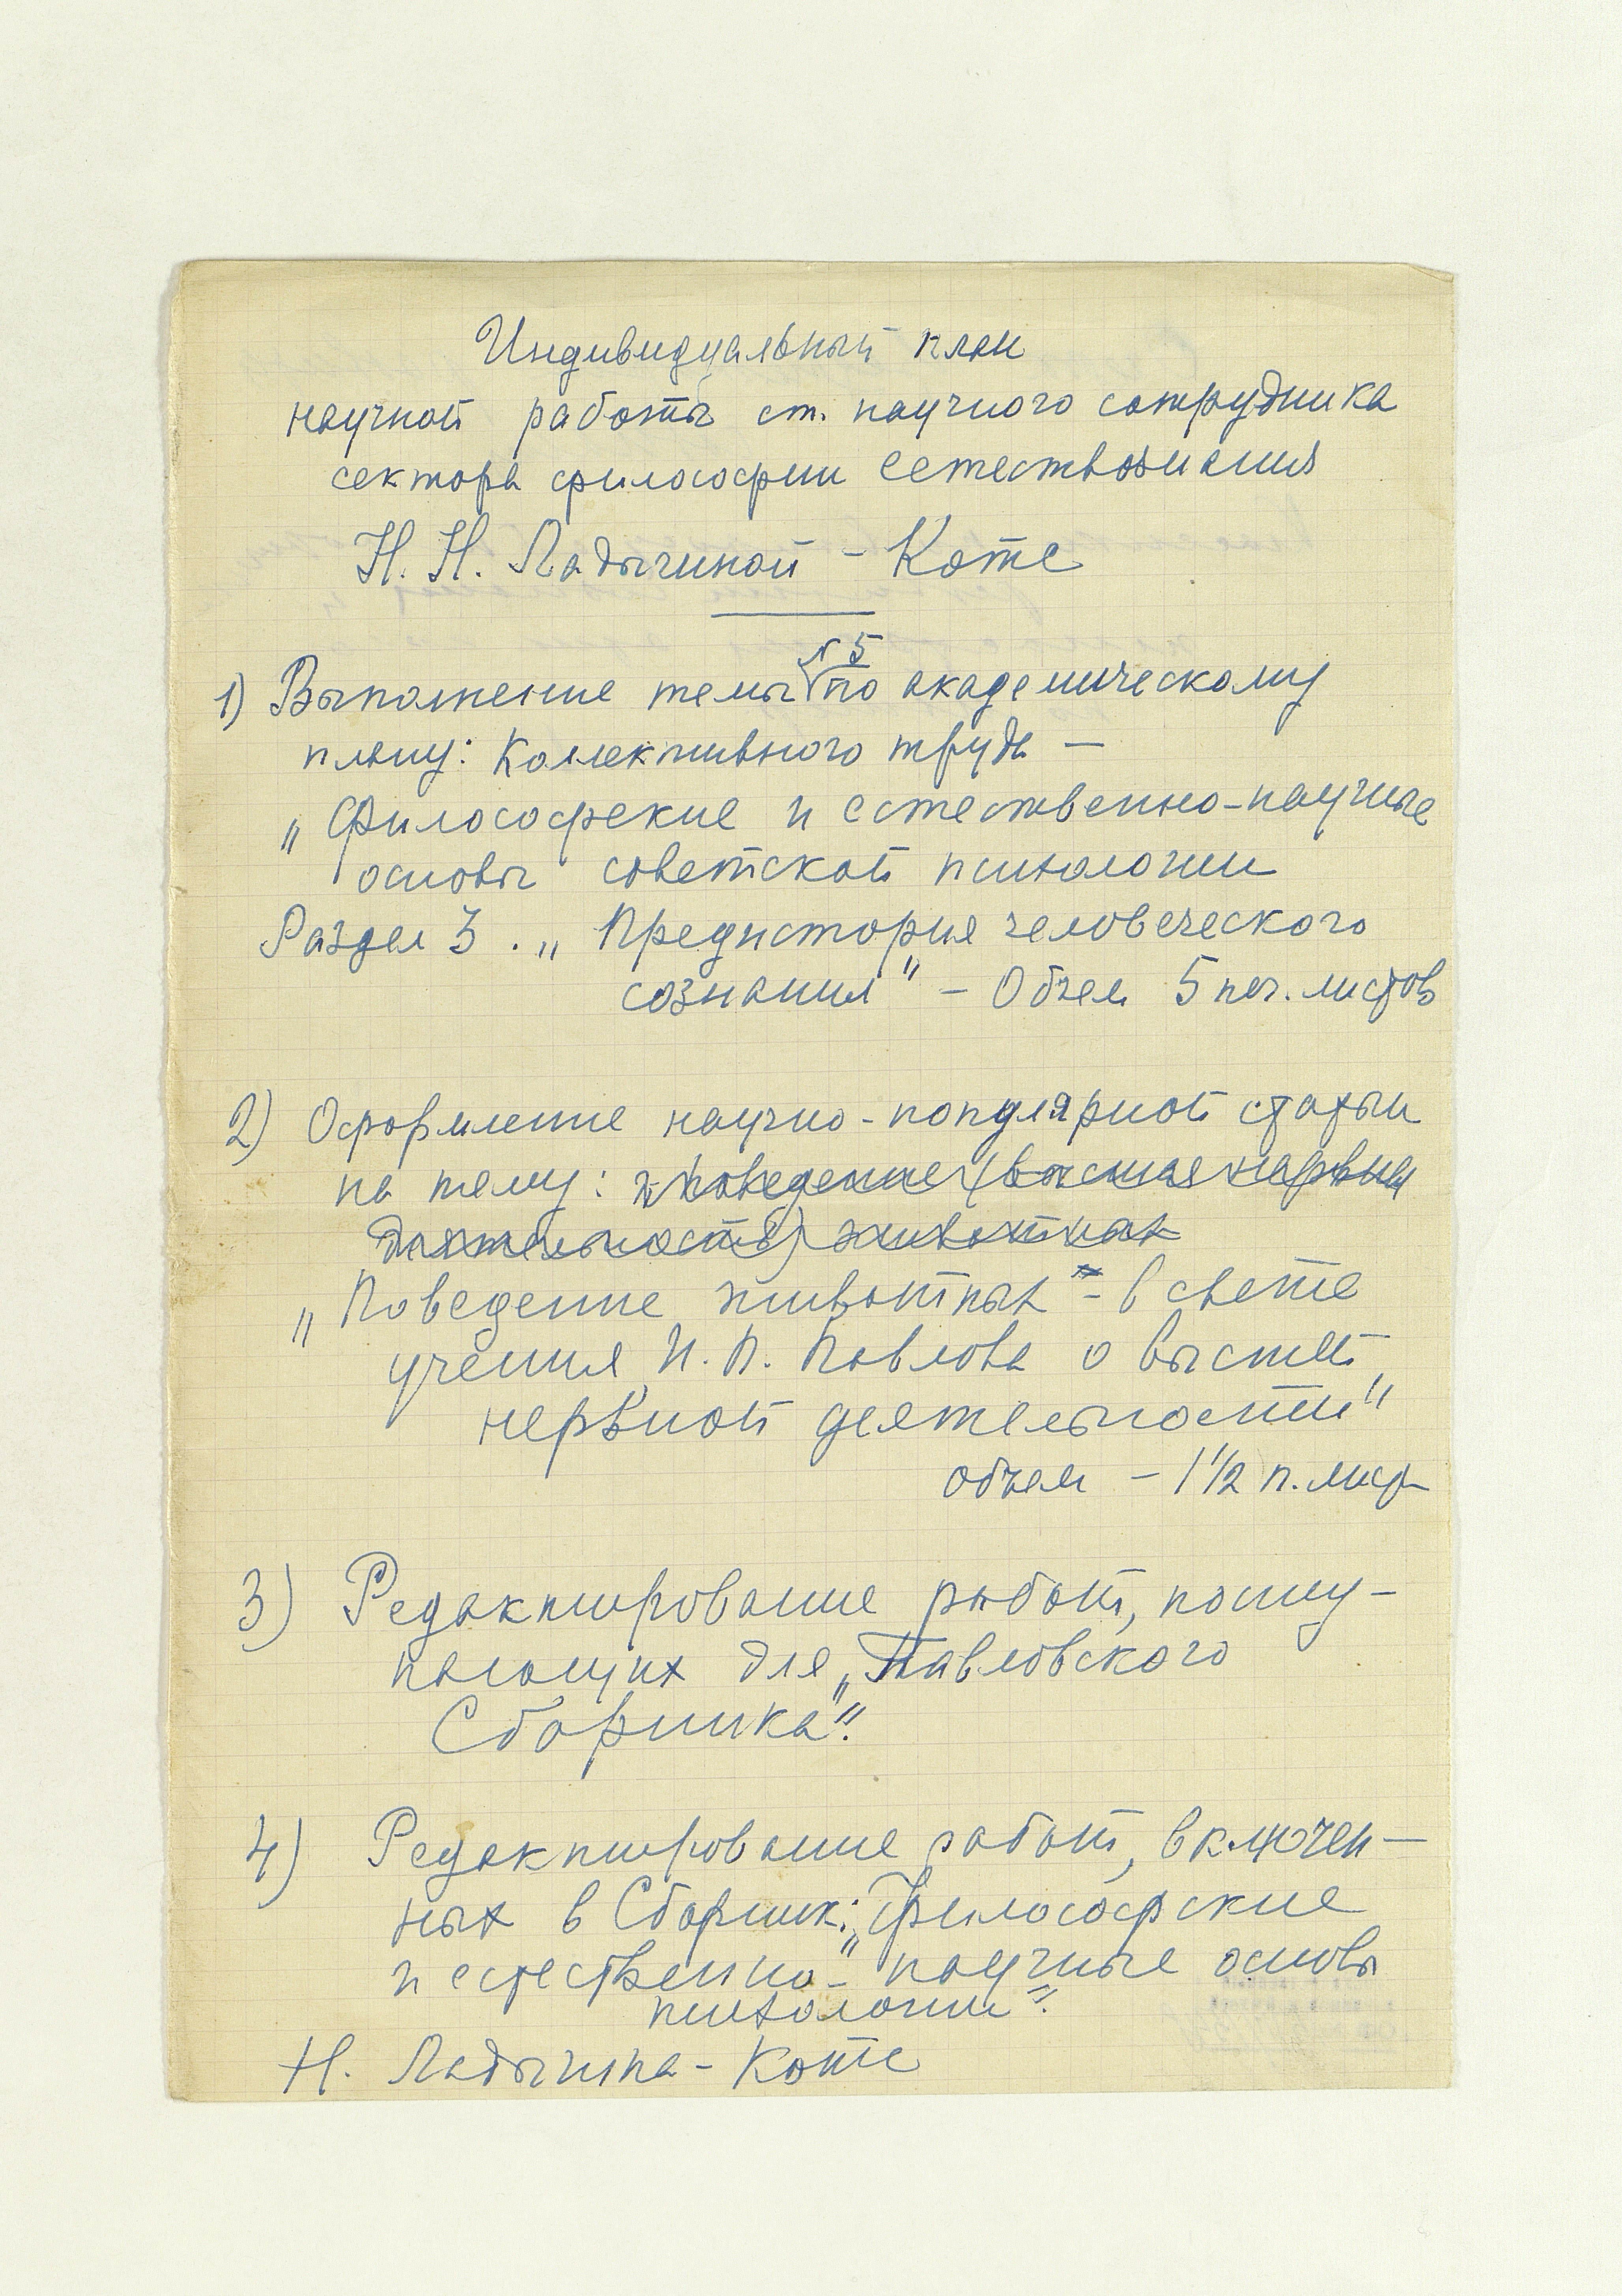 Индивидуальный план
научной работы ст. научного сотрудника
сектора философии естествознания
Н. Н. Ладыгиной - Котс
1) Выполнение темы №5 по академическому
плану: Коллективного труда —
„Философские и естественно-научные
основы советской психологии
Раздел 3. „Предистория человеческого
сознания" - Объем 5 печ. листов
2) Оформление научно-популярной статьи
на тему: „Поведение (высшая нервная
деятельность) животных
„Поведение животных - в свете
учения И. П. Павлова о высшей
нервной деятельности"
объем - 1 1/2 п. лист
3) Редактирование работ, посту-
пающих для „Павловского
Сборника".
4) Редактирование работ, включен-
ных в Сборник: „Философские
и естественно-научные основы
психологии".
Н. Ладыгина-Котс